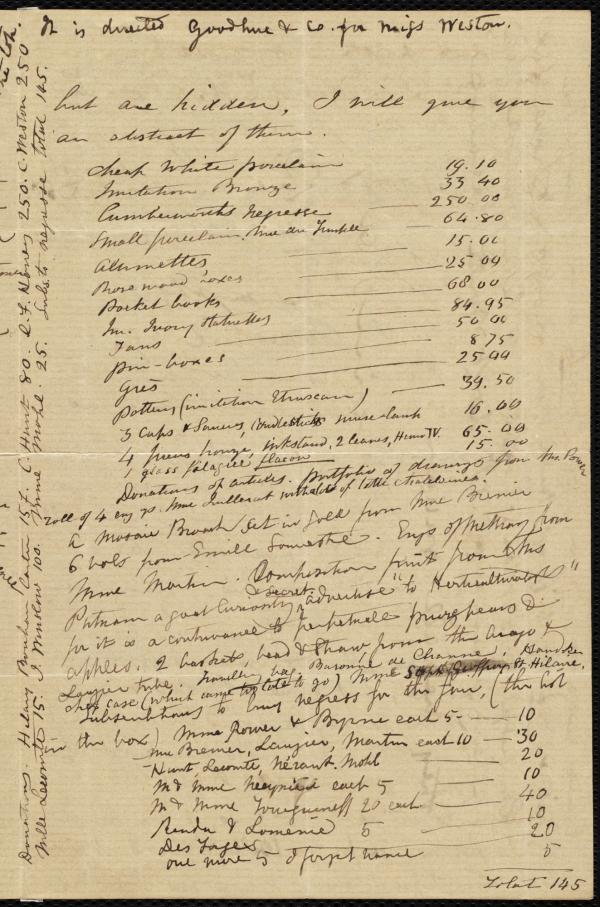 It is directed Goodhue & Co. for Miss Weston.
but are hidden, I will give you
an abstract of them.
Cheap White porcelain 19.10
Imitation Bronze 33 40
Cumberworth's Negresse 250 00
Small porcelain. Mme du 64.80
Allumettes 15.00
Rose wood boxes 25 00
Pocket books 68 00
Im. Ivory Statuettes 84.95
Fans 50 00
pin-boxes 8 75
Grès 25 00
Pottery (imitation Etruscan) 39.50
3 Cups & Saucers, Candlesticks nurse-lamp 16.00
4 pieces bronze, inkstand, 2 leaves, Henri IV. 65.00
1 glass filagree flacon 15 00
Donations of articles. Portfolio of drawings from
roll of 4 eng's. Mme
a Mosaic Brooch set in Gold from Mme Bremier
6 vols from Emile Souvestre. Engs of from
Mme Martin. Composition fruit from Mrs
Putnam a great curiosity & secret, advertise "to Horticulturists"
for it is a contrivance to perpetuate prize pears &
apples. 2 baskets, bead & straw from the
Laugier tribe. Smaller bag Baronne de
Cigar case (which came too late to go) Mme St Hilaire,
Subscriptions to buy Negress for the fair, (the list
in the box) Mme Rower & Byrne each 5 - 10
Mme Bremier, Laugier, Martin each 10 — 30
Hunt, Lecomte, Mohl 20
M & Mme each 5 10
M & Mme Tourgueneff 20 each 40
Renda & Lomenie 5 10
Des 20
one more 5 I forget name 5
Total 145
Donations. Hilary Bonham Carter 157. C. Hunt 80. 250. C. Weston 250
Mlle Lecomte 15. J. Winslow 100. Mme Mohl. 25. Subs to Negresse total 145.